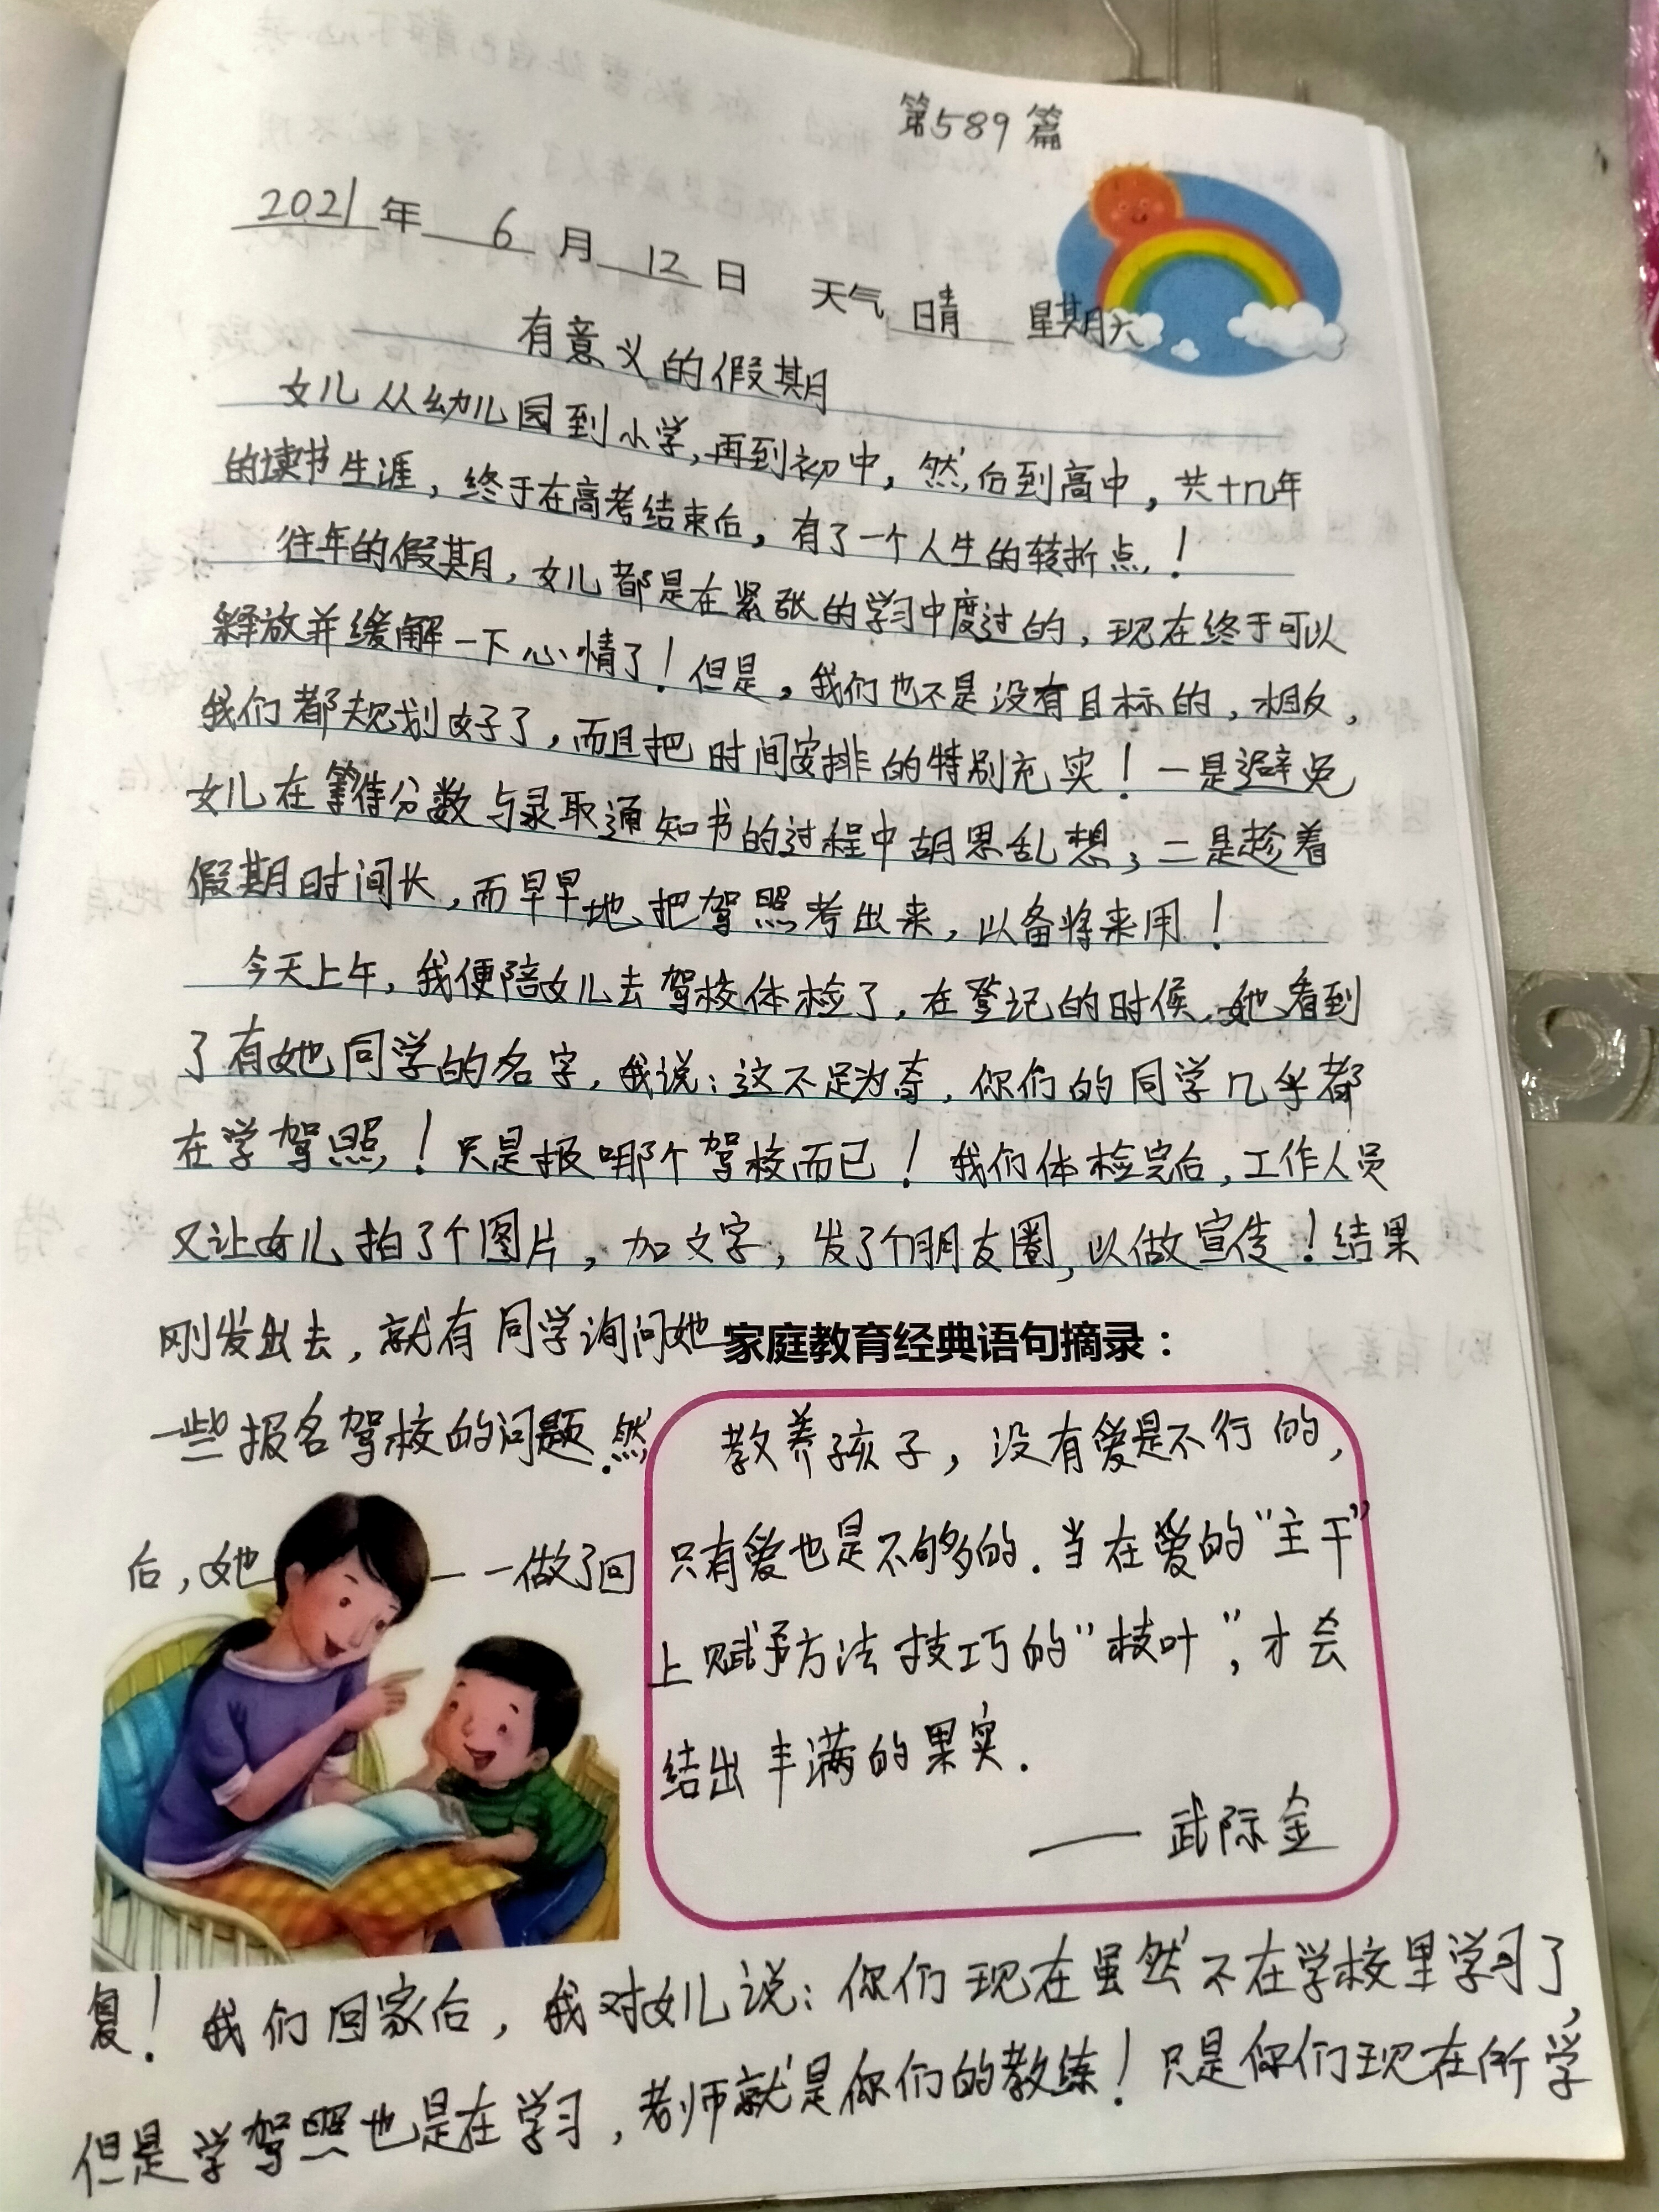 第589篇
2021年 6月 12日 天气 晴 星期六
有意义的假期
女儿从幼儿园到小学,再到初中,然后到高中,共十几年
的读书生涯,终于在高考结束后,有了一个人生的转折点!
往年的假期,女儿都是在紧张的学习中度过的,现在终于可以
释放并缓解一下心情了!但是,我们也不是没有目标的,相反,
我们都规划好了,而且把时间安排的特别充实!一是避免
女儿在等待分数与录取通知书的过程中胡思乱想;二是趁着
假期时间长,而早早地把驾照考出来,以备将来用!
今天上午,我便陪女儿去驾校体检了,在登记的时候,她看到
了有她同学的名字,我说:这不足为奇,你们的同学几乎都
在学驾照!只是报哪个驾校而已!我们体检完后,工作人员
又让女儿拍了个图片,加文字,发了个朋友圈,以做宣传!结果
刚发出去,就有同学询问她
一些报名驾校的问题.然
后,她一一做了回
家庭教育经典语句摘录:
教养孩子,没有爱是不行的,
只有爱也是不够多的.当在爱的“主干”
上赋予方法技巧的“枝叶”,才会
结出丰满的果实.
——武际金
复!我们回家后,我对女儿说:你们现在虽然不在学校里学习了,
但是学驾照也是在学习,老师就是你们的教练!只是你们现在所学